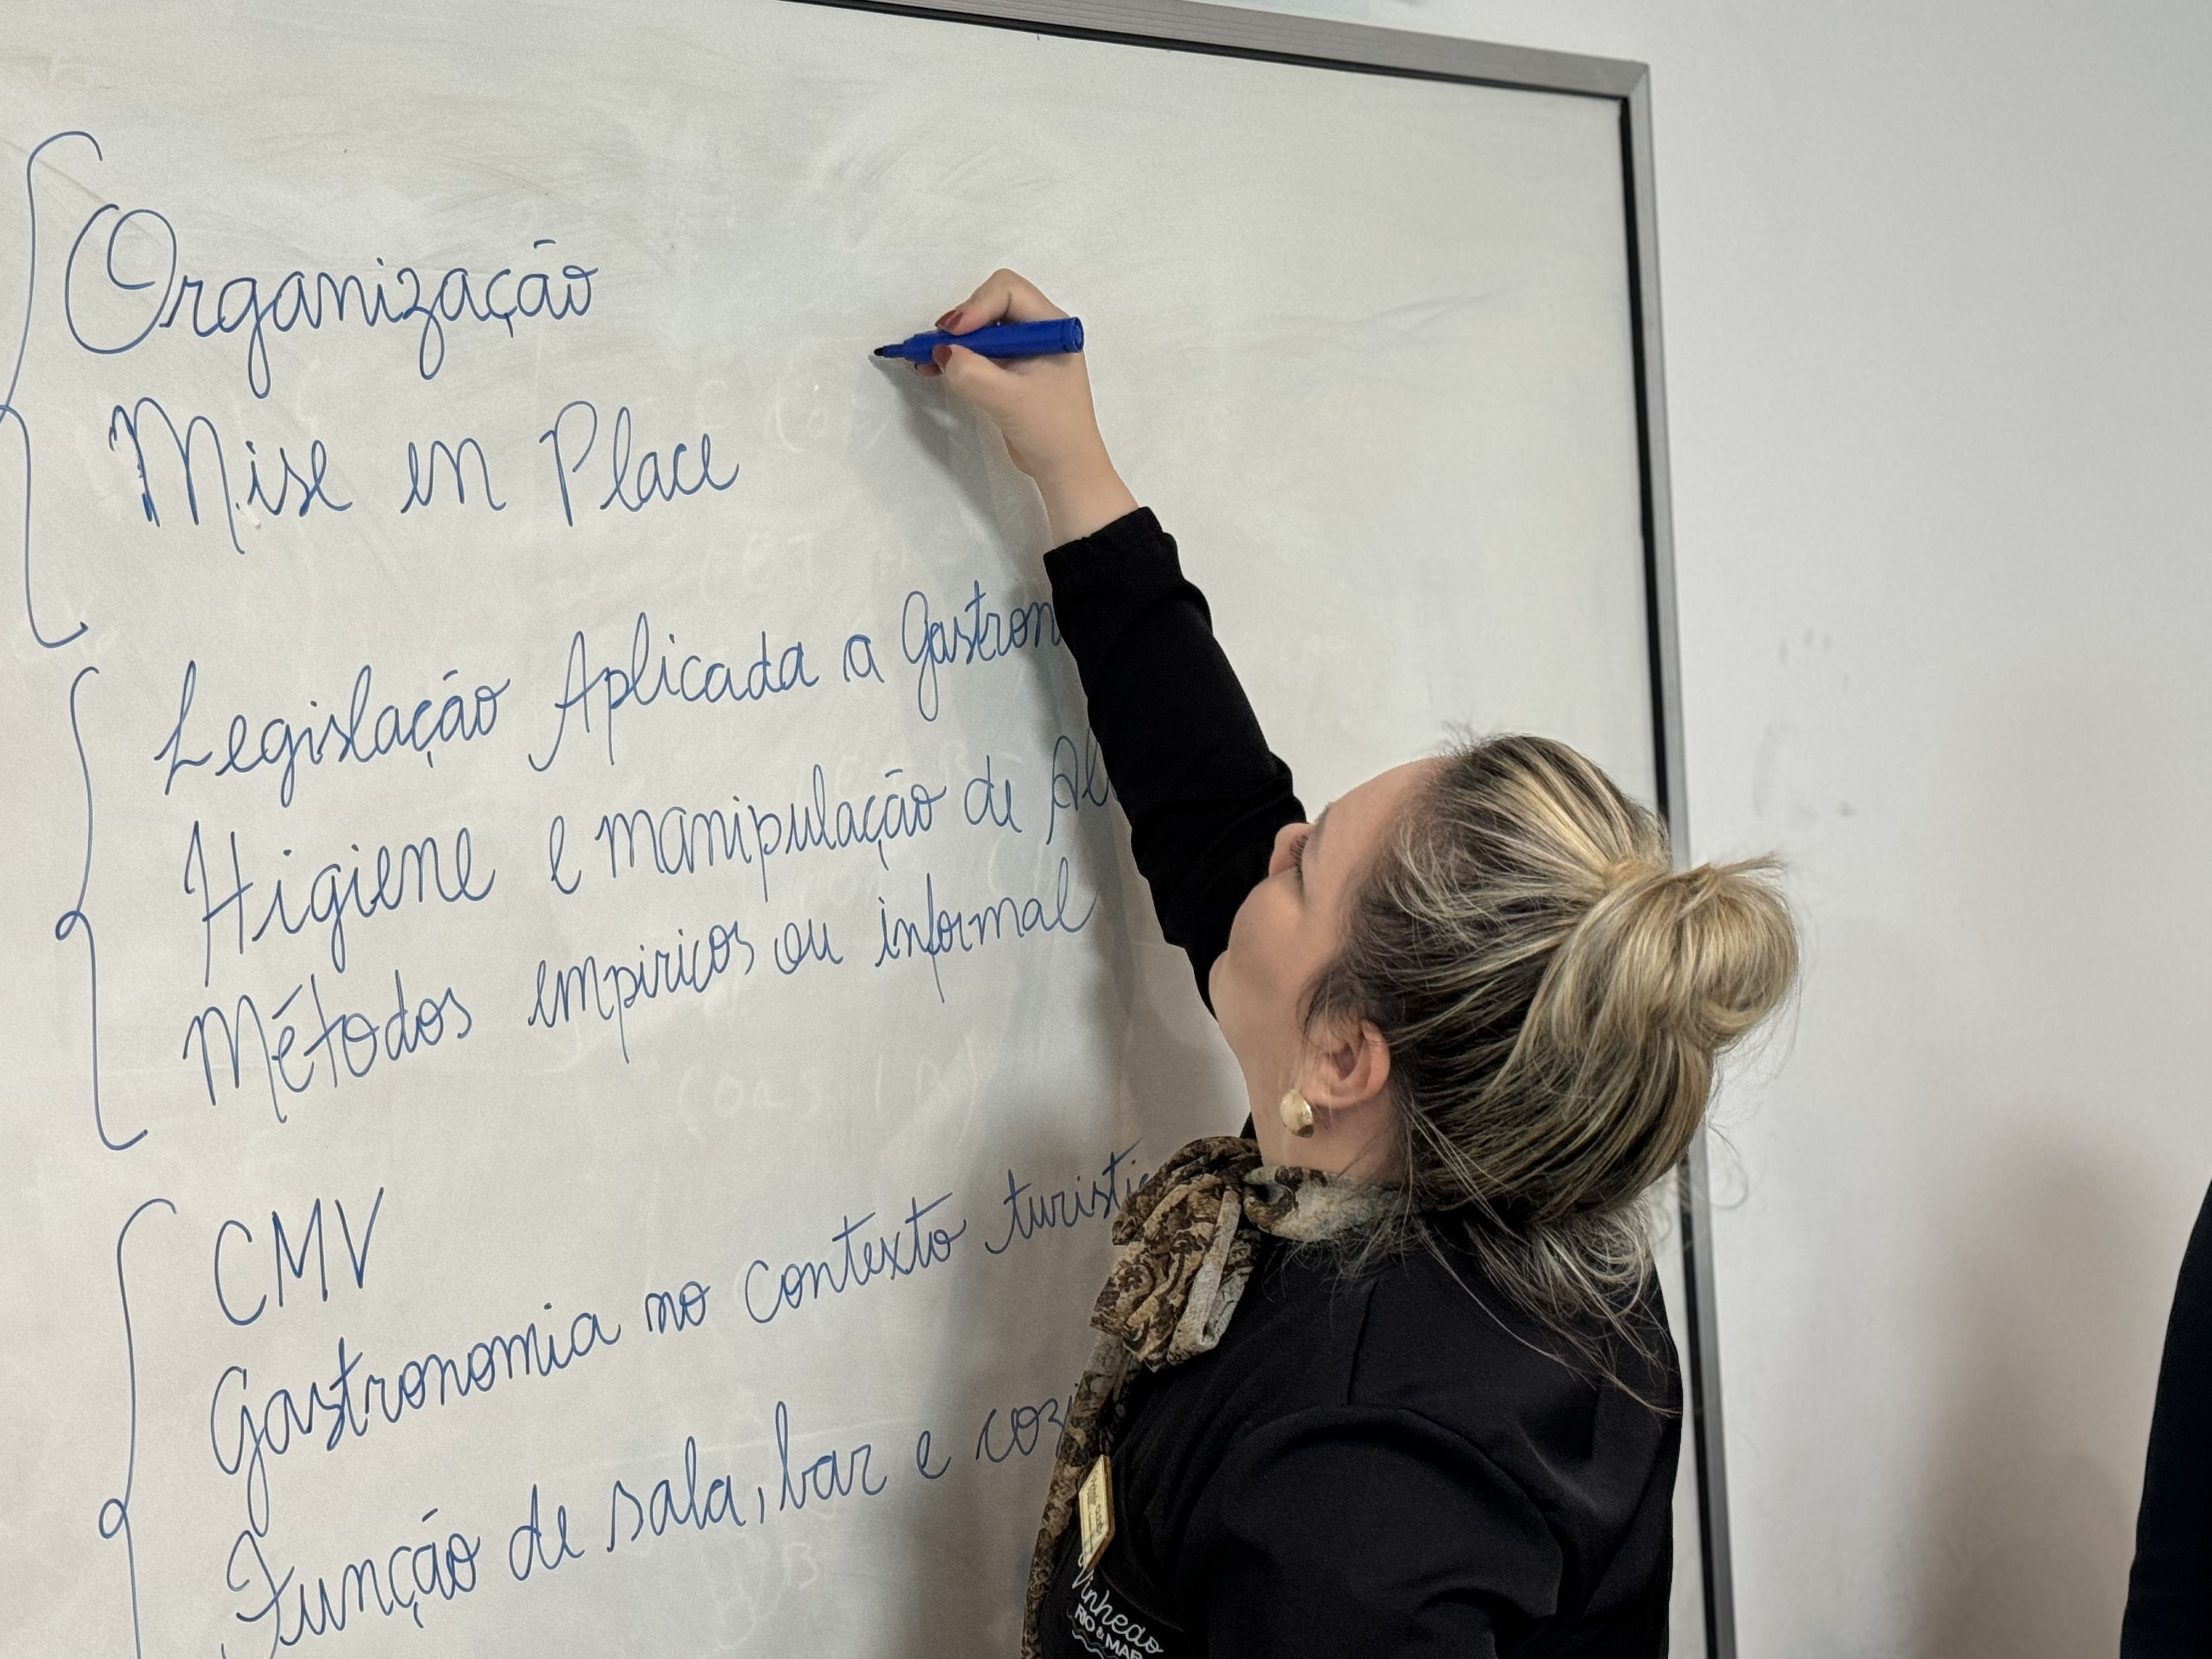 Organização
Mise en Place
Legislação Aplicada a Gastron
Higiene e manipulação de Al
Métodos empiricos ou informal
CMV
Gastronomia no contexto turistic
Função de sala, bar e cozi
Vinhedo
RIO & MAR